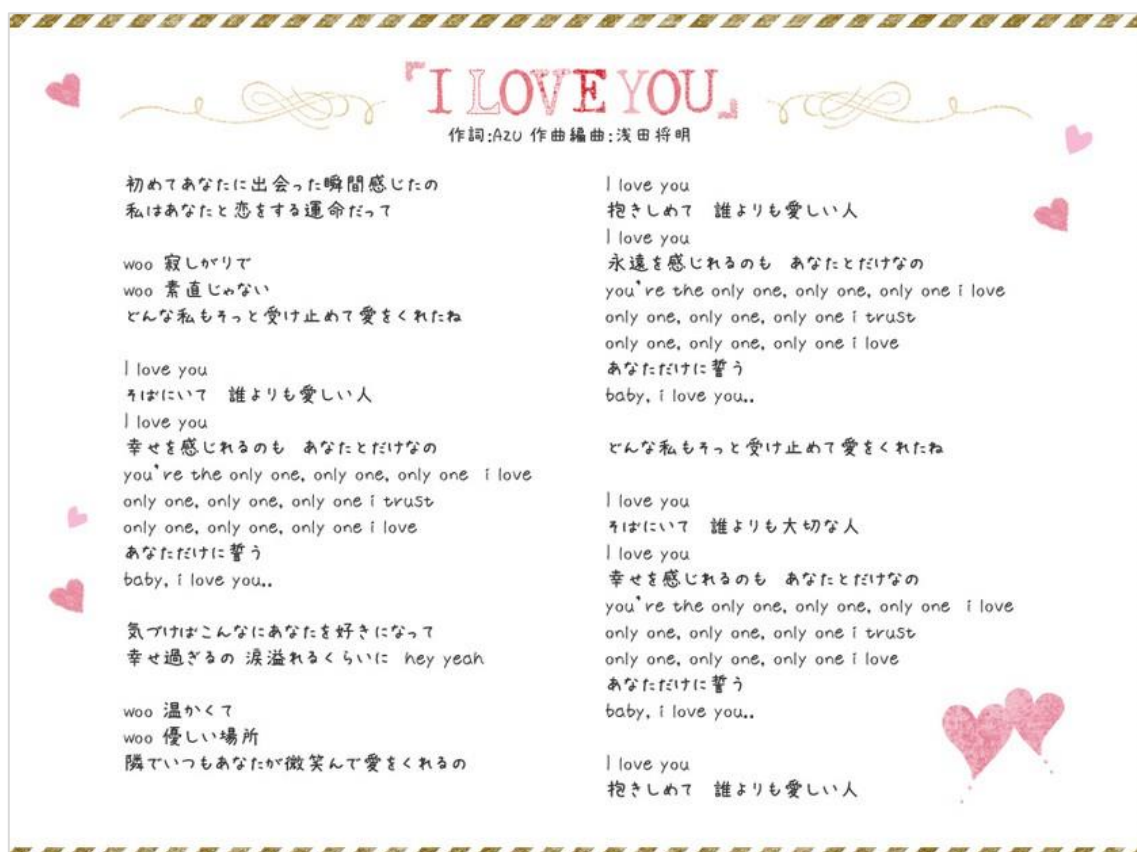 「I LOVE YOU」
作詞:AZU 作曲編曲:浅田将明
初めてあなたに出会った瞬間感じたの
私はあなたと恋をする運命だって
woo 寂しがりで
woo 素直じゃない
どんな私もそっと受け止めて愛をくれたね
I love you
そばにいて　誰よりも愛しい人
I love you
幸せを感じれるのも　あなたとだけなの
you're the only one, only one, only one i love
only one, only one, only one i trust
only one, only one, only one i love
あなただけに誓う
baby, i love you..
気づけばこんなにあなたを好きになって
幸せ過ぎるの 涙溢れるくらいに hey yeah
woo 温かくて
woo 優しい場所
隣でいつもあなたが微笑んで愛をくれるの
I love you
抱きしめて　誰よりも愛しい人
I love you
永遠を感じれるのも　あなたとだけなの
you're the only one, only one, only one i love
only one, only one, only one i trust
only one, only one, only one i love
あなただけに誓う
baby, i love you..
どんな私もそっと受け止めて愛をくれたね
I love you
そばにいて　誰よりも大切な人
I love you
幸せを感じれるのも　あなたとだけなの
you're the only one, only one, only one i love
only one, only one, only one i trust
only one, only one, only one i love
あなただけに誓う
baby, i love you..
I love you
抱きしめて　誰よりも愛しい人